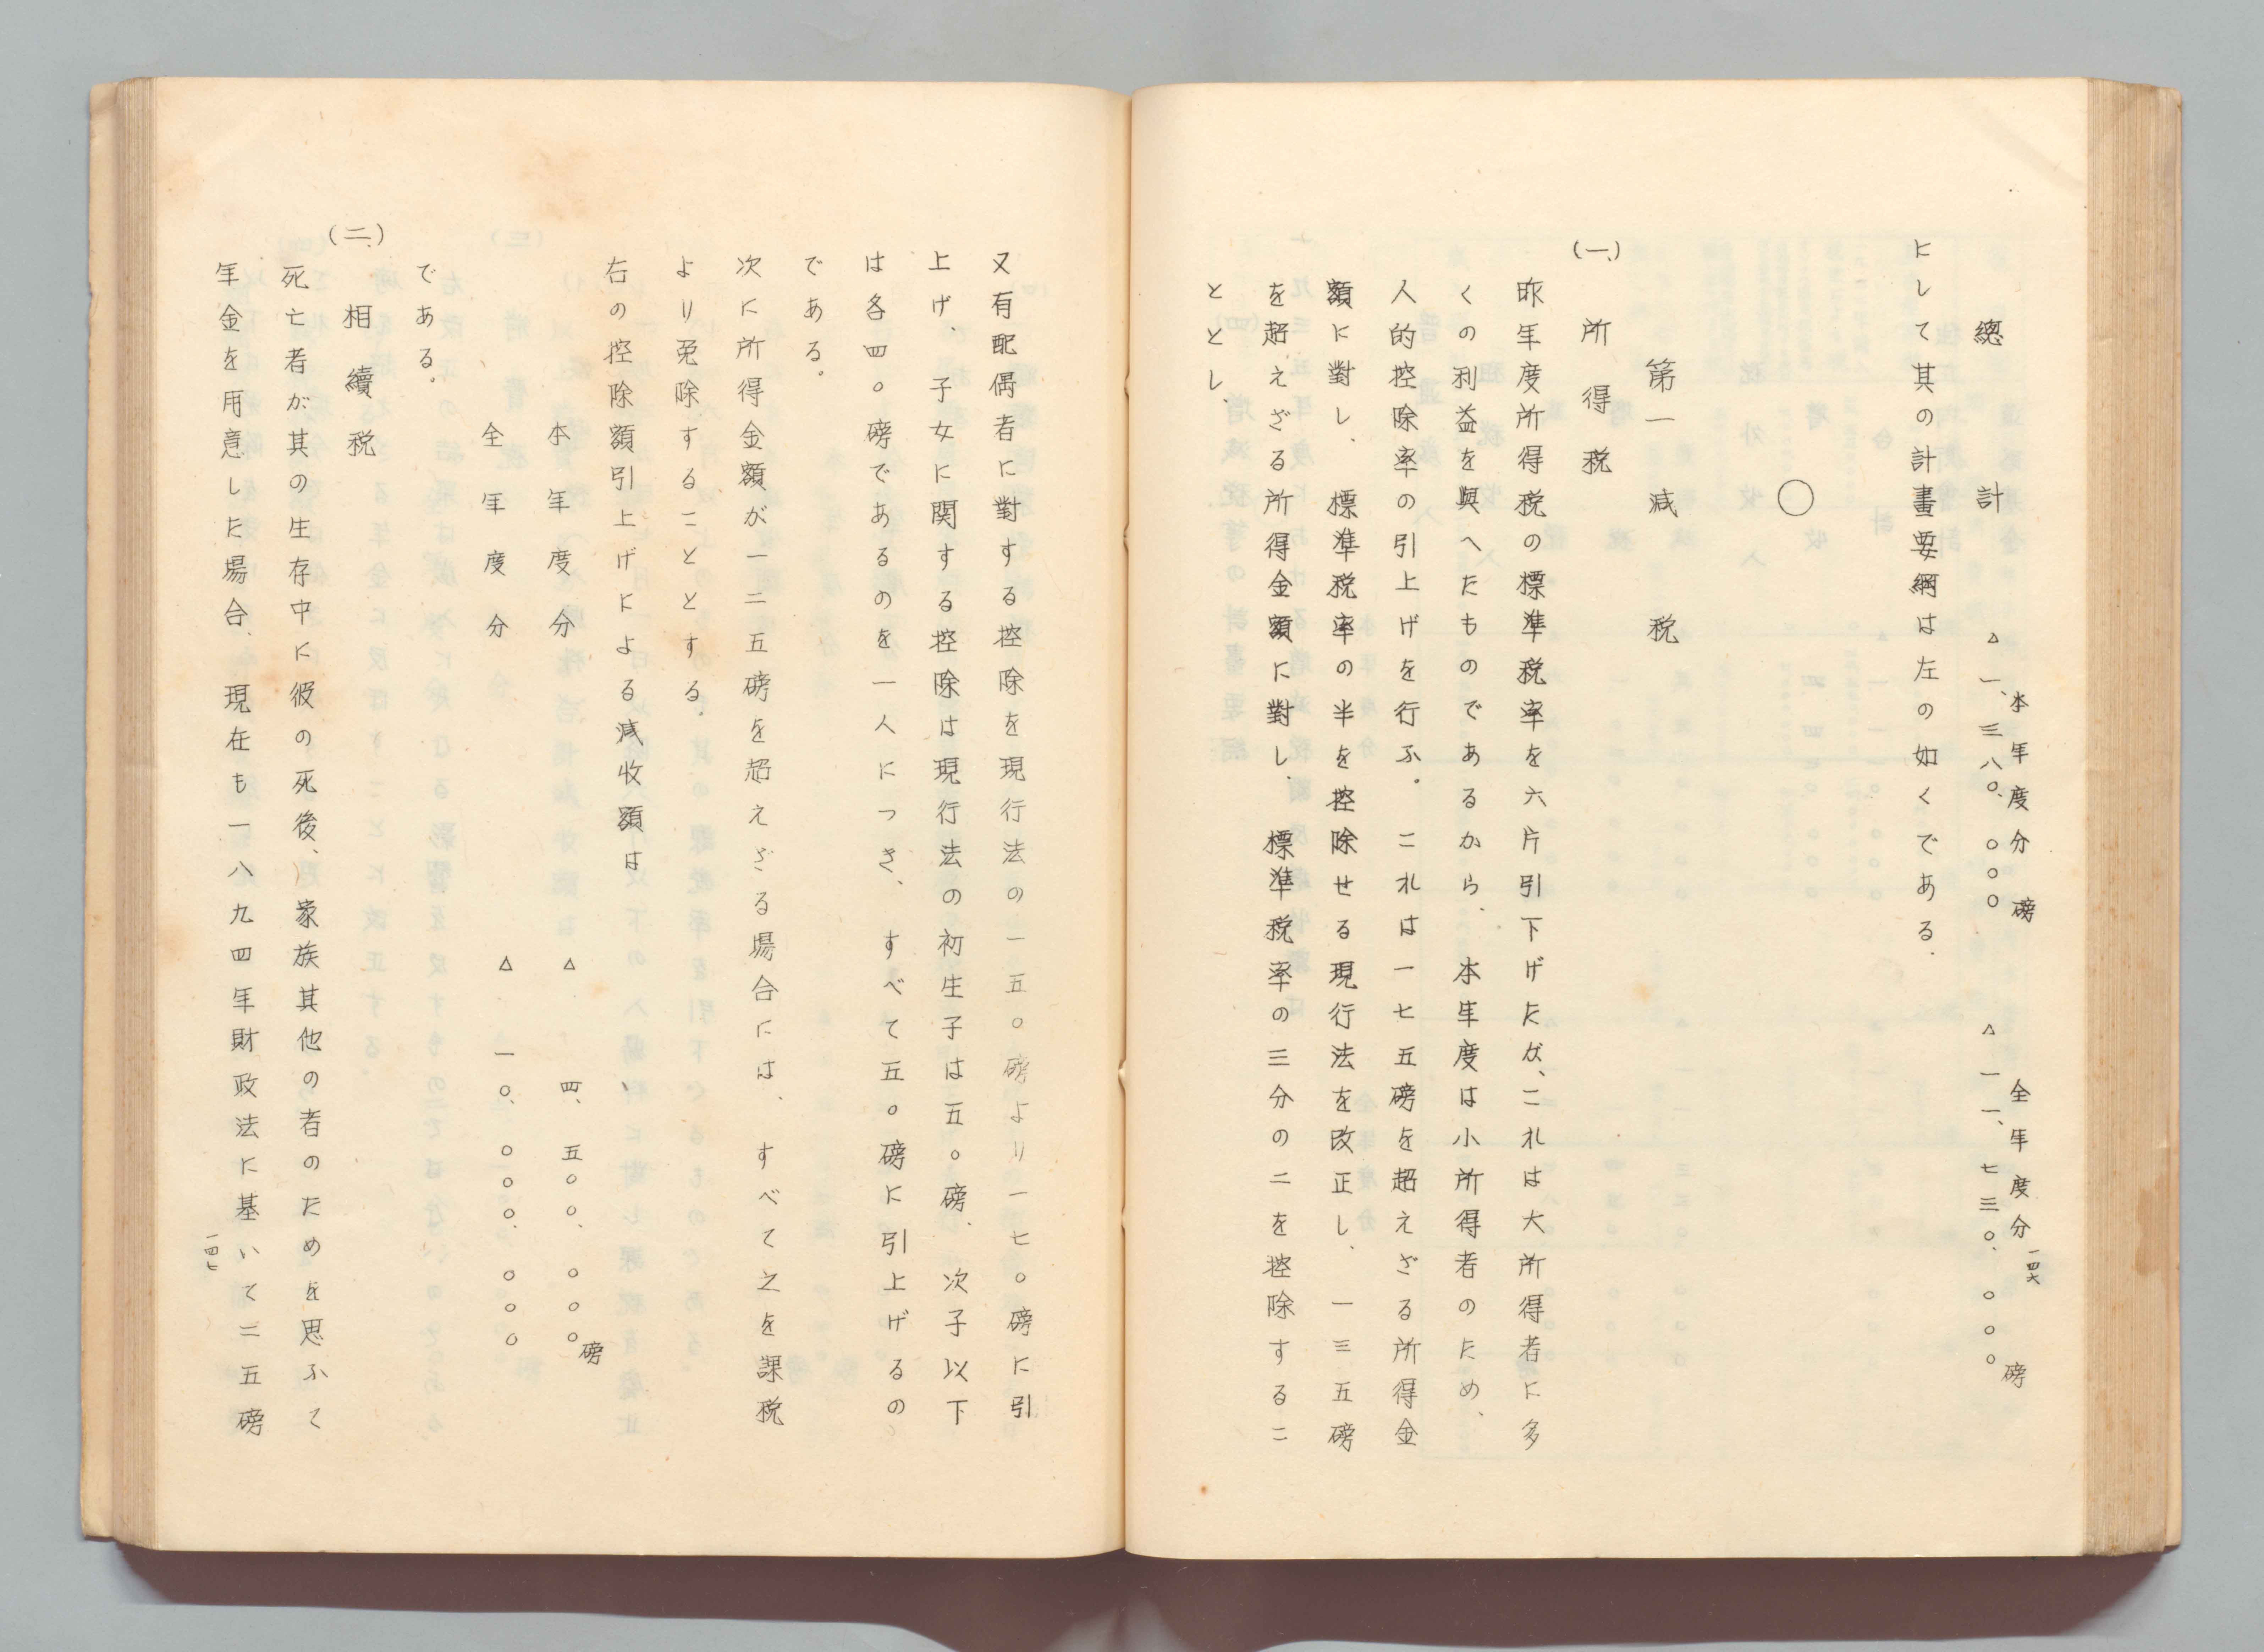 本年度分　磅　全年度分　磅
總計　△一、三八〇、〇〇〇　△一一、七三〇、〇〇〇
にして其の計畫要綱は左の如くである.
〇
第一　減　税
(一)所得税
昨年度所得税の標準税率を六片引下げたが、これは大所得者に多
くの利益を與へたものであるから、本年度は小所得者のため、
人的控除率の引上げを行ふ。これは一七五磅を超えざる所得金
額に對し、標準税率の半を控除せる現行法を改正し、一三五磅
を超えざる所得金額に對し、標準税率の三分の二を控除するこ
ととし、
一四六
又有配偶者に對する控除を現行法の一五〇磅より一七〇磅に引
上げ、子女に関する控除は現行法の初生子は五〇磅、次子以下
は各四〇磅であるのを一人につき、すべて五〇磅に引上げるの
である.
次に所得金額が一二五磅を超えざる場合には、すべて之を課税
より免除することとする.
右の控除額引上げによる減收額は
本年度分　△　四、五〇〇、〇〇〇磅
全年度分　△　一〇、〇〇〇、〇〇〇
である.
(二)相續税
死亡者が其の生存中に彼の死後、家族其他の者のためを思ふて
年金を用意した場合、現在も一八九四年財政法に基いて二五磅
一四七